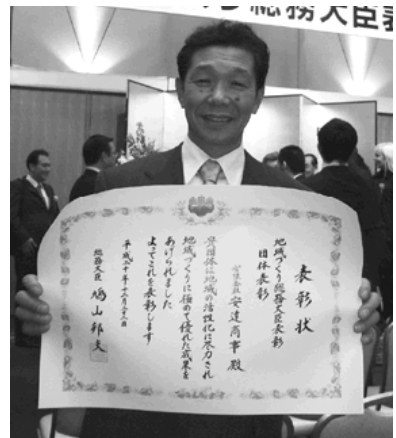 総務大臣表
表彰状
地域づくり総務大臣表彰
団体表彰
安達商事殿
貴団体は地域の活性化に尽力され
地域づくりに極めて優れた成果を
あげられました
よってこれを表彰します
平成二十年十二月
総務大臣 鳩山邦夫